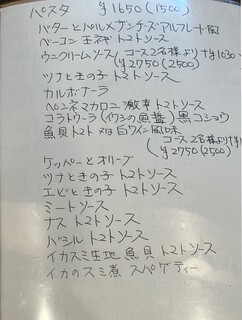 パスタ ¥1650(1500)
バターとパルメザンチーズ・アルフレード風
ベーコン 玉ネギ トマトソース
ウニクリームソース (コース2名様より +¥1030
¥2750(2500)
ツナときの子 トマトソース
カルボナーラ
ペンネマカロニ 激辛トマトソース
コラトゥーラ(イワシの魚醤)黒コショウ
魚貝トマト 又は 白ワイン風味
(コース2名様より
¥2750(2500)
ケッパーとオリーブ
ツナときの子 トマトソース
エビときの子 トマトソース
ミートソース
ナス トマトソース
バジル トマトソース
イカスミ生地 魚貝 トマトソース
イカのスミ煮 スパゲティー